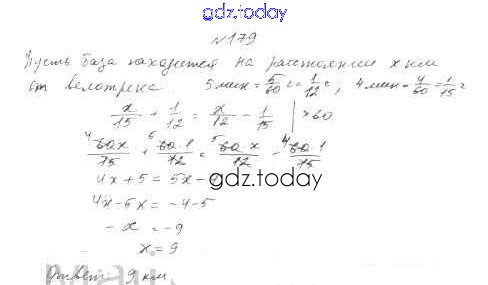 gdz.today
№179
Пусть база находится на расстоянии x км
от велотрека. 5 мин = 5/60 ч = 1/12 ч; 4 мин = 4/60 = 1/15 ч
x/15 + 1/12 = x/12 - 1/15 | ×60
4 60x/15 + 5 60·1/12 = 5 60·x/12 - 4 60·1/15
4x+5 = 5x-4
gdz.today
4x-5x = -4-5
-x = -9
x = 9
Ответ 9 км.